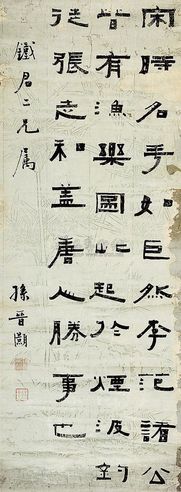 宋時名手如巨然李范諸公
皆有漁樂圖此起於煙波釣
徒張志和蓋唐人勝事也
鐵君二兄屬
孫晋灝